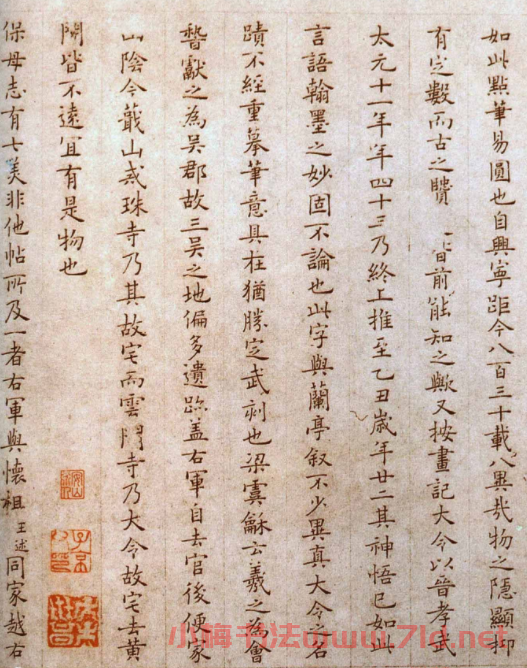 如此點筆易圓也自興寧距今八百三十載八異哉物之隱顯抑
有定數而古之 前能知之歟又按畫記大令以晉孝武
太元十一年年四十三乃終上推至乙丑歲年廿二其神悟已如此
言語翰墨之妙固不論也此字與蘭亭叙不少異真大令之名
蹟不經重摹筆意具在猶勝定武刻也梁虞龢云羲之為會
稽獻之為吳郡故三吳之地偏多遺跡盖右軍自去官後便家
山陰今蕺山戒珠寺乃其故宅而雲門寺乃大令故宅去黄
閍皆不遠宜有是物也
保母志有七美非他帖所及一者右軍與懷祖王述同家越右
小梅书法www.7ld.net